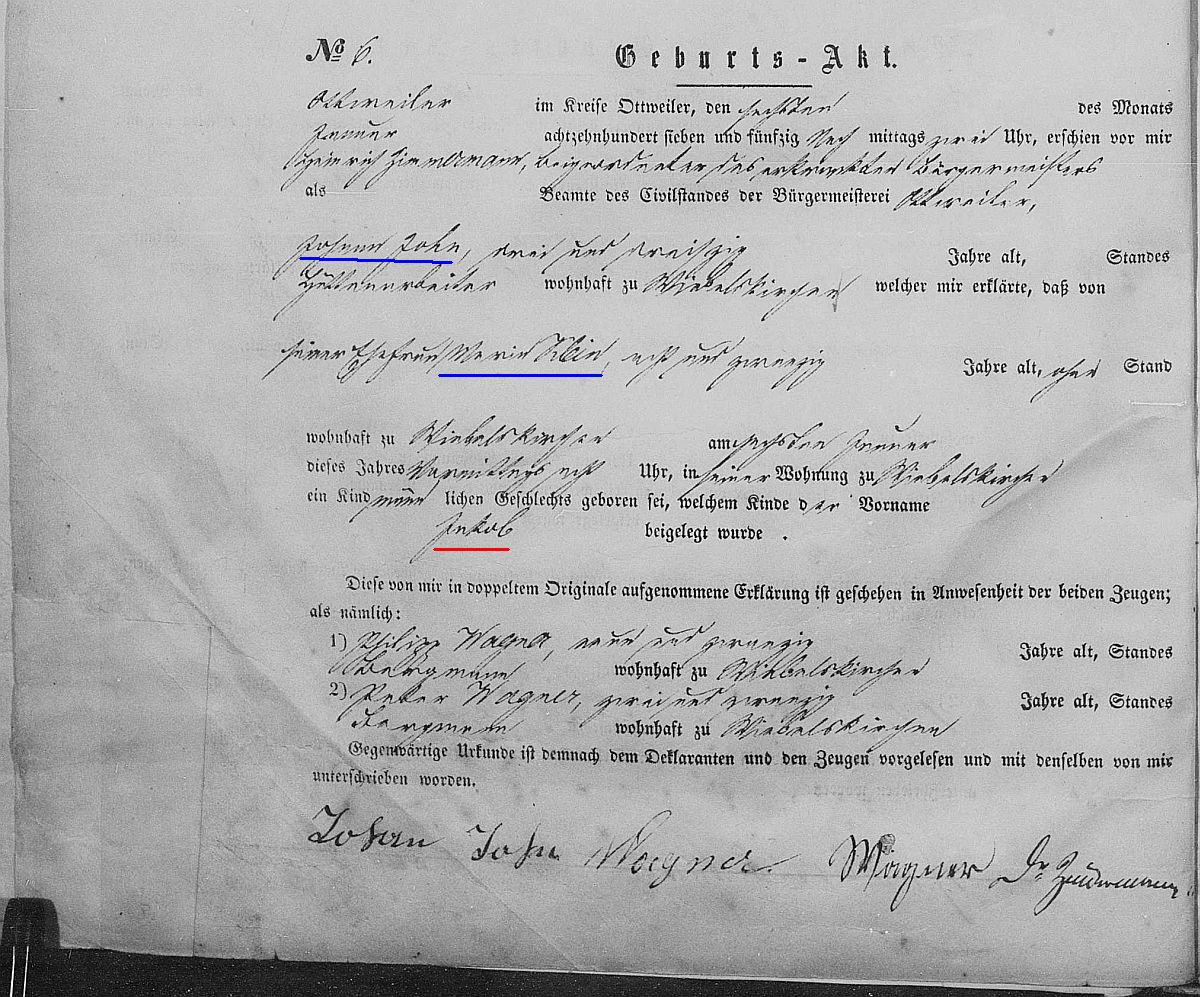 No 6. Geburts-Akt.
Ottweiler im Kreise Ottweiler, den sechsten des Monats
Januar achtzehnhundert sieben und fünfzig Nach mittags zwei Uhr, erschien vor mir
Heinrich Zimmermann, Beigeordneter des erkrankten Bürgermeisters
als Beamte des Civilstandes der Bürgermeisterei Ottweiler,
Johann John, drei und dreißig Jahre alt, Standes
Hüttenarbeiter wohnhaft zu Wiebelskirchen welcher mir erklärte, daß von
seiner Ehefrau Maria Klein, acht und zwanzig Jahre alt, ohne Stand
wohnhaft zu Wiebelskirchen am sechsten Januar
dieses Jahres Vormittags acht Uhr, in seiner Wohnung zu Wiebelskirchen
ein Kind männ lichen Geschlechts geboren sei, welchem Kinde der Vorname
Jakob beigelegt wurde .
Diese von mir in doppeltem Originale aufgenommene Erklärung ist geschehen in Anwesenheit der beiden Zeugen;
als nämlich:
1) Philipp Wagner, neun und zwanzig Jahre alt, Standes
Bergmann wohnhaft zu Wiebelskirchen
2) Peter Wagner, zwei und zwanzig Jahre alt, Standes
Bergmann wohnhaft zu Wiebelskirchen
Gegenwärtige Urkunde ist demnach dem Deklaranten und den Zeugen vorgelesen und mit denselben von mir
unterschrieben worden.
Johan John Wagner Wagner Dr Zimmermann